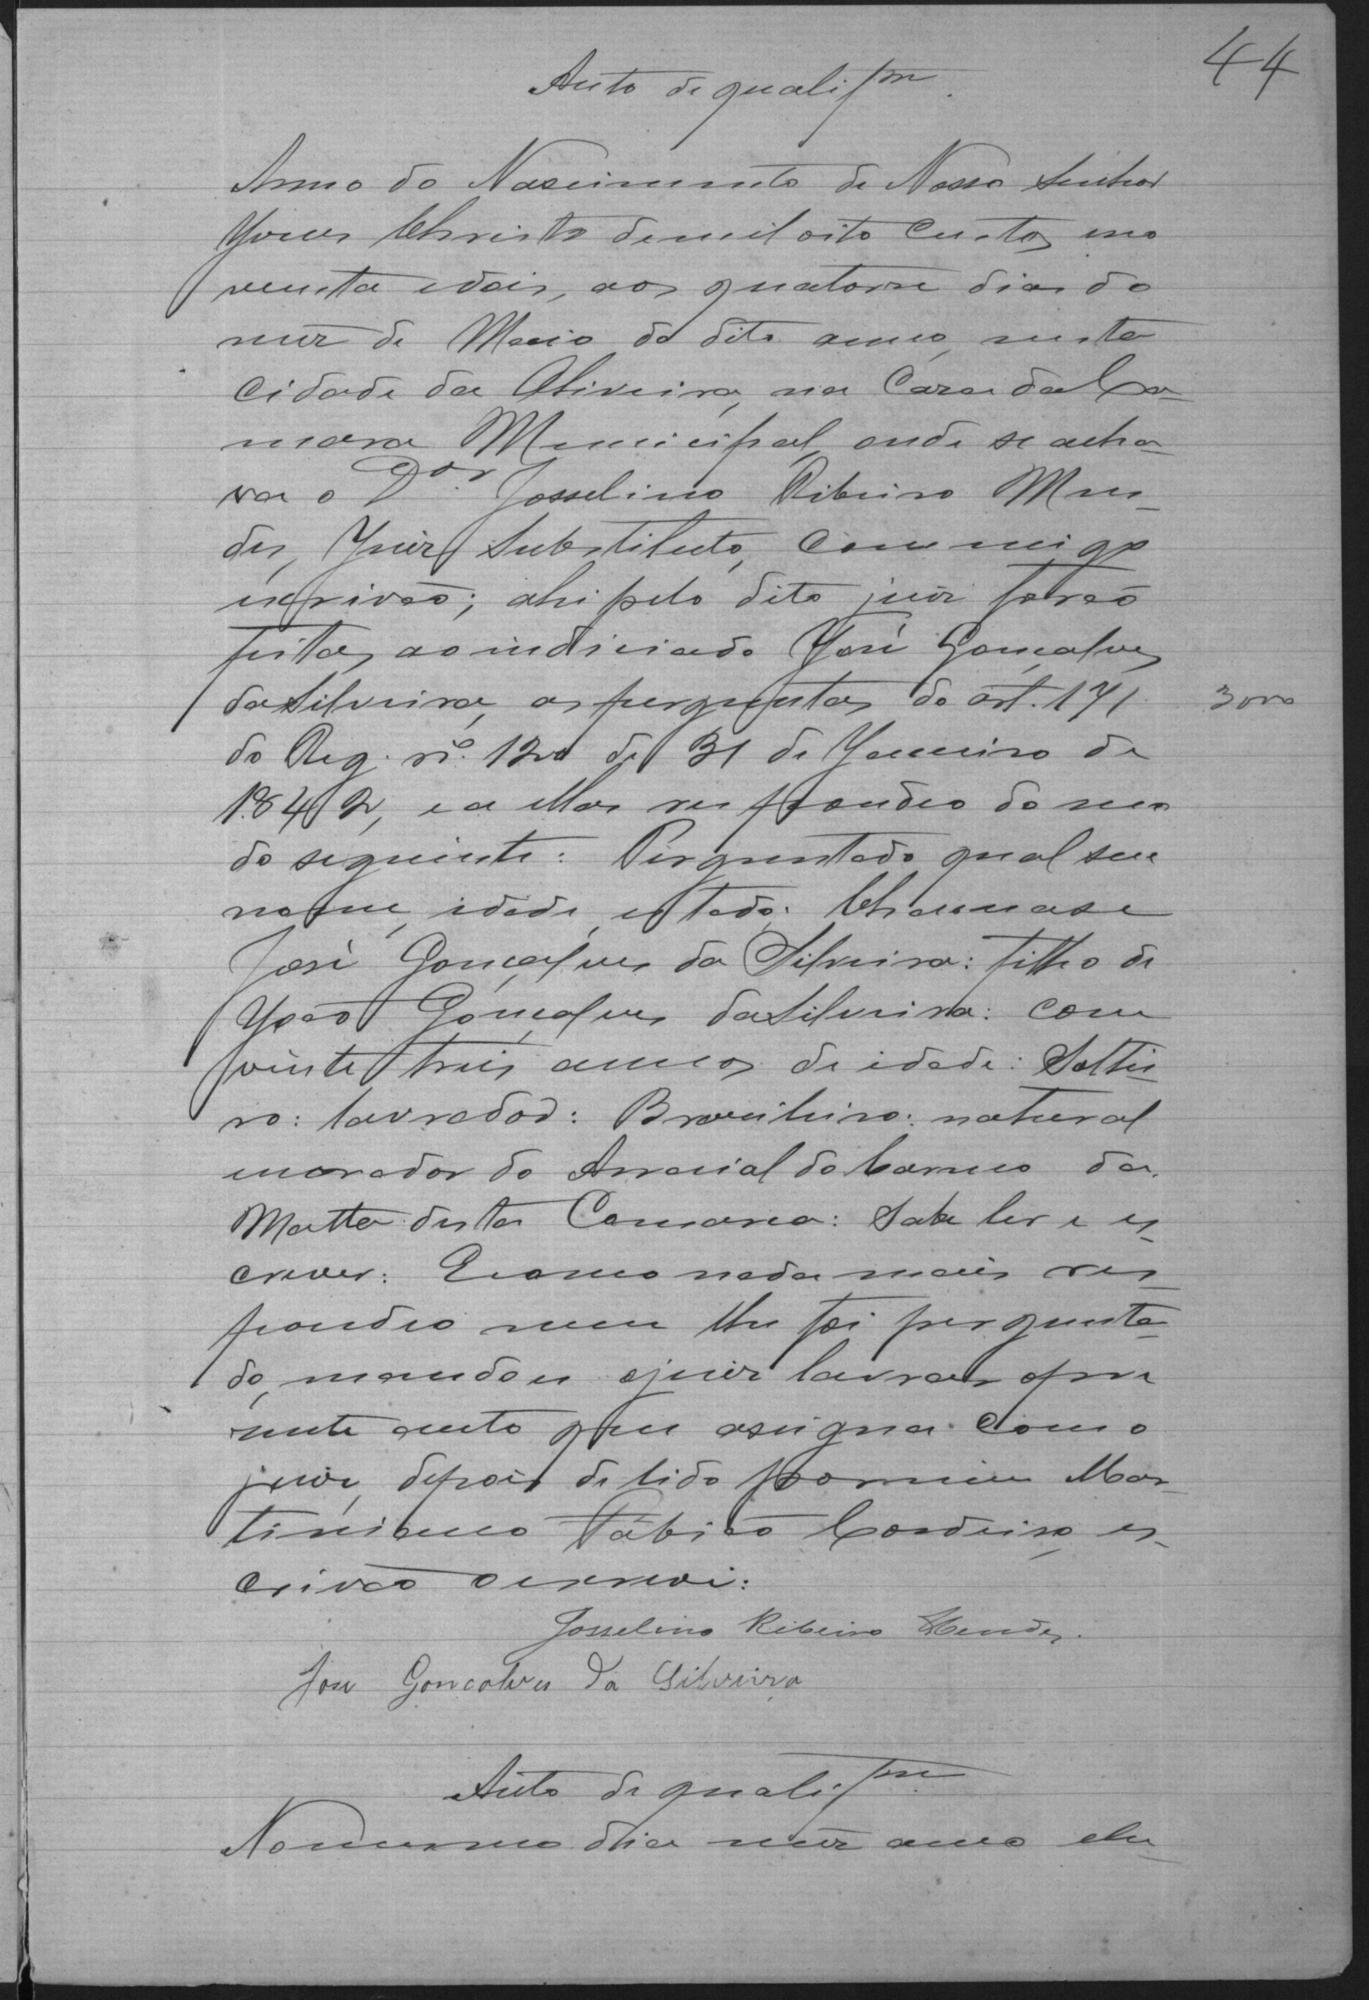 44
Auto de qualifm.
Anno do Nascimento de Nosso Senhor
Jesus Christo de mil oito centos no
venta e dois, aos quatorse dias do
mez de Maio do dito anno, nesta
Cidade da Oliveira, na Caza da Ca-
mara Municipal, onde se acha-
va o Dor. Josselino Ribeiro Men-
des, Juiz Substituto, commigo
escrivão; ahi pelo dito juiz forão
feitas ao indiciado José Gonçalves
da Silveira, as perguntas do art. 171
3000
do Reg. nº. 120 de 31 de Janeiro de
1842, e a ellas respondeo do mo
do seguinte: Perguntado qual seu
nome, idade, estado: Chamase
José Gonçalves da Silveira: filho de
João Gonçalves da Silveira: com
vinte tres annos de idade: Soltei-
ro: lavrador: Brazileiro: natural
morador do Arraial do Carmo da
Matta desta Comarca: Sabe ler e es-
crever: E como nada mais res-
pondeo nem lhe foi pergunta-
do, mandou o juiz lavrar o pre
zente auto que assigna com o
juiz, depois de lido por mim Mar-
tiniano Fabião Cordeiro, es-
crivão o escrevi:
Josselino Ribeiro Mendes.
Jose Goncalves da Silveira
Auto de qualifm.
No mesmo dia mez anno e lu-